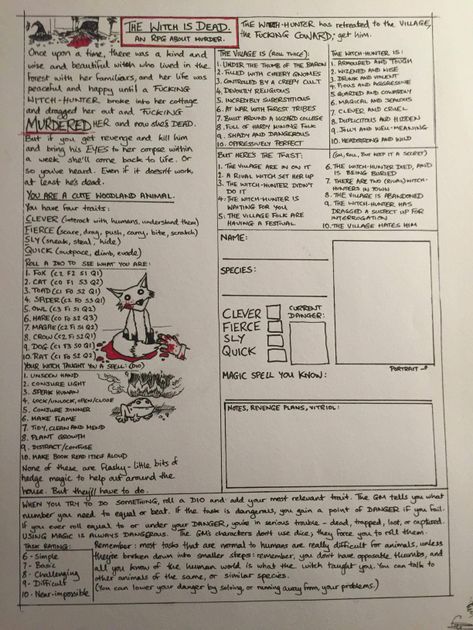 THE WITCH IS DEAD.
AN RPG ABOUT MURDER.
Once upon a time, there was a kind and
wise and beautiful witch who lived in the
forest with her familiars, and her life was
peaceful and happy until a FUCKING
WITCH-HUNTER broke into her cottage
and dragged her out and FUCKING
MURDERED HER and now she's DEAD.
But if you get revenge and kill him
and bring his EYES to her corpse within
a week she'll come back to life. Or
so you've heard. Even if it doesn't work,
at least he's dead.
YOU ARE A CUTE WOODLAND ANIMAL.
You have four traits:
CLEVER (interact with humans, understand them)
FIERCE (scare, drag, push, carry, bite, scratch)
SLY (sneak, steal, hide)
QUICK (outpace, climb, evade)
ROLL A DIO TO SEE WHAT YOU ARE:
1. FOX (C2 F2 S1 Q1)
2. CAT (C0 F1 S3 Q2)
3. TOAD (C1 F0 S2 Q1)
4. SPIDER (C2 F0 S3 Q1)
5. OWL (C3 F1 S1 Q2)
6. HARE (C0 F1 S2 Q3)
7. MAGPIE (C2 F1 S1 Q2)
8. CROW (C2 F1 S1 Q2)
9. DOG (C1 F3 S0 Q1)
10. RAT (C1 F1 S2 Q1)
YOUR WITCH TAUGHT YOU A SPELL: (DIO)
1. UNSEEN HAND
2. CONJURE LIGHT
3. SPEAK HUMAN
4. LOCK/UNLOCK, OPEN/CLOSE
5. CONJURE DINNER
6. MAKE FLAME
7. TIDY, CLEAN AND MEND
8. PLANT GROWTH
9. DISTRACT/CONFUSE
10. MAKE BOOK READ ITSELF ALOUD
None of these are flashy - little bits of
hedge magic to help out around the
house. But they'll have to do.
THE WITCH-HUNTER has retreated to the VILLAGE,
the FUCKING COWARD; get him.
THE VILLAGE IS (ROLL TWICE):
1. UNDER THE THUMB OF THE BARON
2. FILLED WITH CHEERY GNOMES
3. CONTROLLED BY A CREEPY CULT
4. DEVOUTLY RELIGIOUS
5. INCREDIBLY SUPERSTITIOUS
6. AT WAR WITH FOREST TRIBES
7. BUILT AROUND A WIZARD COLLEGE
8. FULL OF HARDY MINING FOLK
9. SHADY AND DANGEROUS
10. OPPRESSIVELY PERFECT
THE WITCH-HUNTER IS:
1. ARMOURED AND TOUGH
2. WIZENED AND WISE
3. DRUNK AND VIOLENT
4. PIOUS AND AGGRESSIVE
5. GUARDED AND COWARDLY
6. MAGICAL AND ZEALOUS
7. CLEVER AND CRUEL
8. DUPLICITOUS AND HIDDEN
9. JOLLY AND WELL-MEANING
10. HEADSTRONG AND WILD
BUT HERE'S THE TWIST:
(GM, ROLL, BUT KEEP IT A SECRET)
1. THE VILLAGE ARE IN ON IT
2. A RIVAL WITCH SET HER UP
3. THE WITCH-HUNTER DIDN'T
DO IT
4. THE WITCH-HUNTER IS
WAITING FOR YOU
5. THE VILLAGE FOLK ARE
HAVING A FESTIVAL
6. THE WITCH-HUNTER DIED, AND
IS BEING BURIED
7. THERE ARE TWO (RIVAL) WITCH-
HUNTERS IN TOWN
8. THE VILLAGE IS ABANDONED
9. THE WITCH-HUNTER HAS
DRAGGED A SUSPECT UP FOR
INTERROGATION
10. THE VILLAGE HATES HIM
NAME:
SPECIES:
CLEVER
FIERCE
SLY
QUICK
CURRENT
DANGER:
PORTRAIT
MAGIC SPELL YOU KNOW:
NOTES, REVENGE PLANS, VITRIOL:
WHEN YOU TRY TO DO SOMETHING, roll a DIO and add your most relevant trait. The GM tells you what
number you need to equal or beat. If the task is dangerous, you gain a point of DANGER if you fail.
If you ever roll equal to or under your DANGER, you're in serious trouble - dead, trapped, lost, or captured.
USING MAGIC IS ALWAYS DANGEROUS. The GM's characters don't use dice; they force you to roll them.
TASK RATING:
6 - Simple
7 - Basic
8 - Challenging
9 - Difficult
10 - Near-impossible
Remember: most tasks that are normal to humans are really difficult for animals, unless
they're broken down into smaller steps; remember, you don't have opposable thumbs, and
all you know of the human world is what the witch taught you. You can talk to
other animals of the same, or similar species.
(You can lower your danger by solving, or running away from, your problems.)